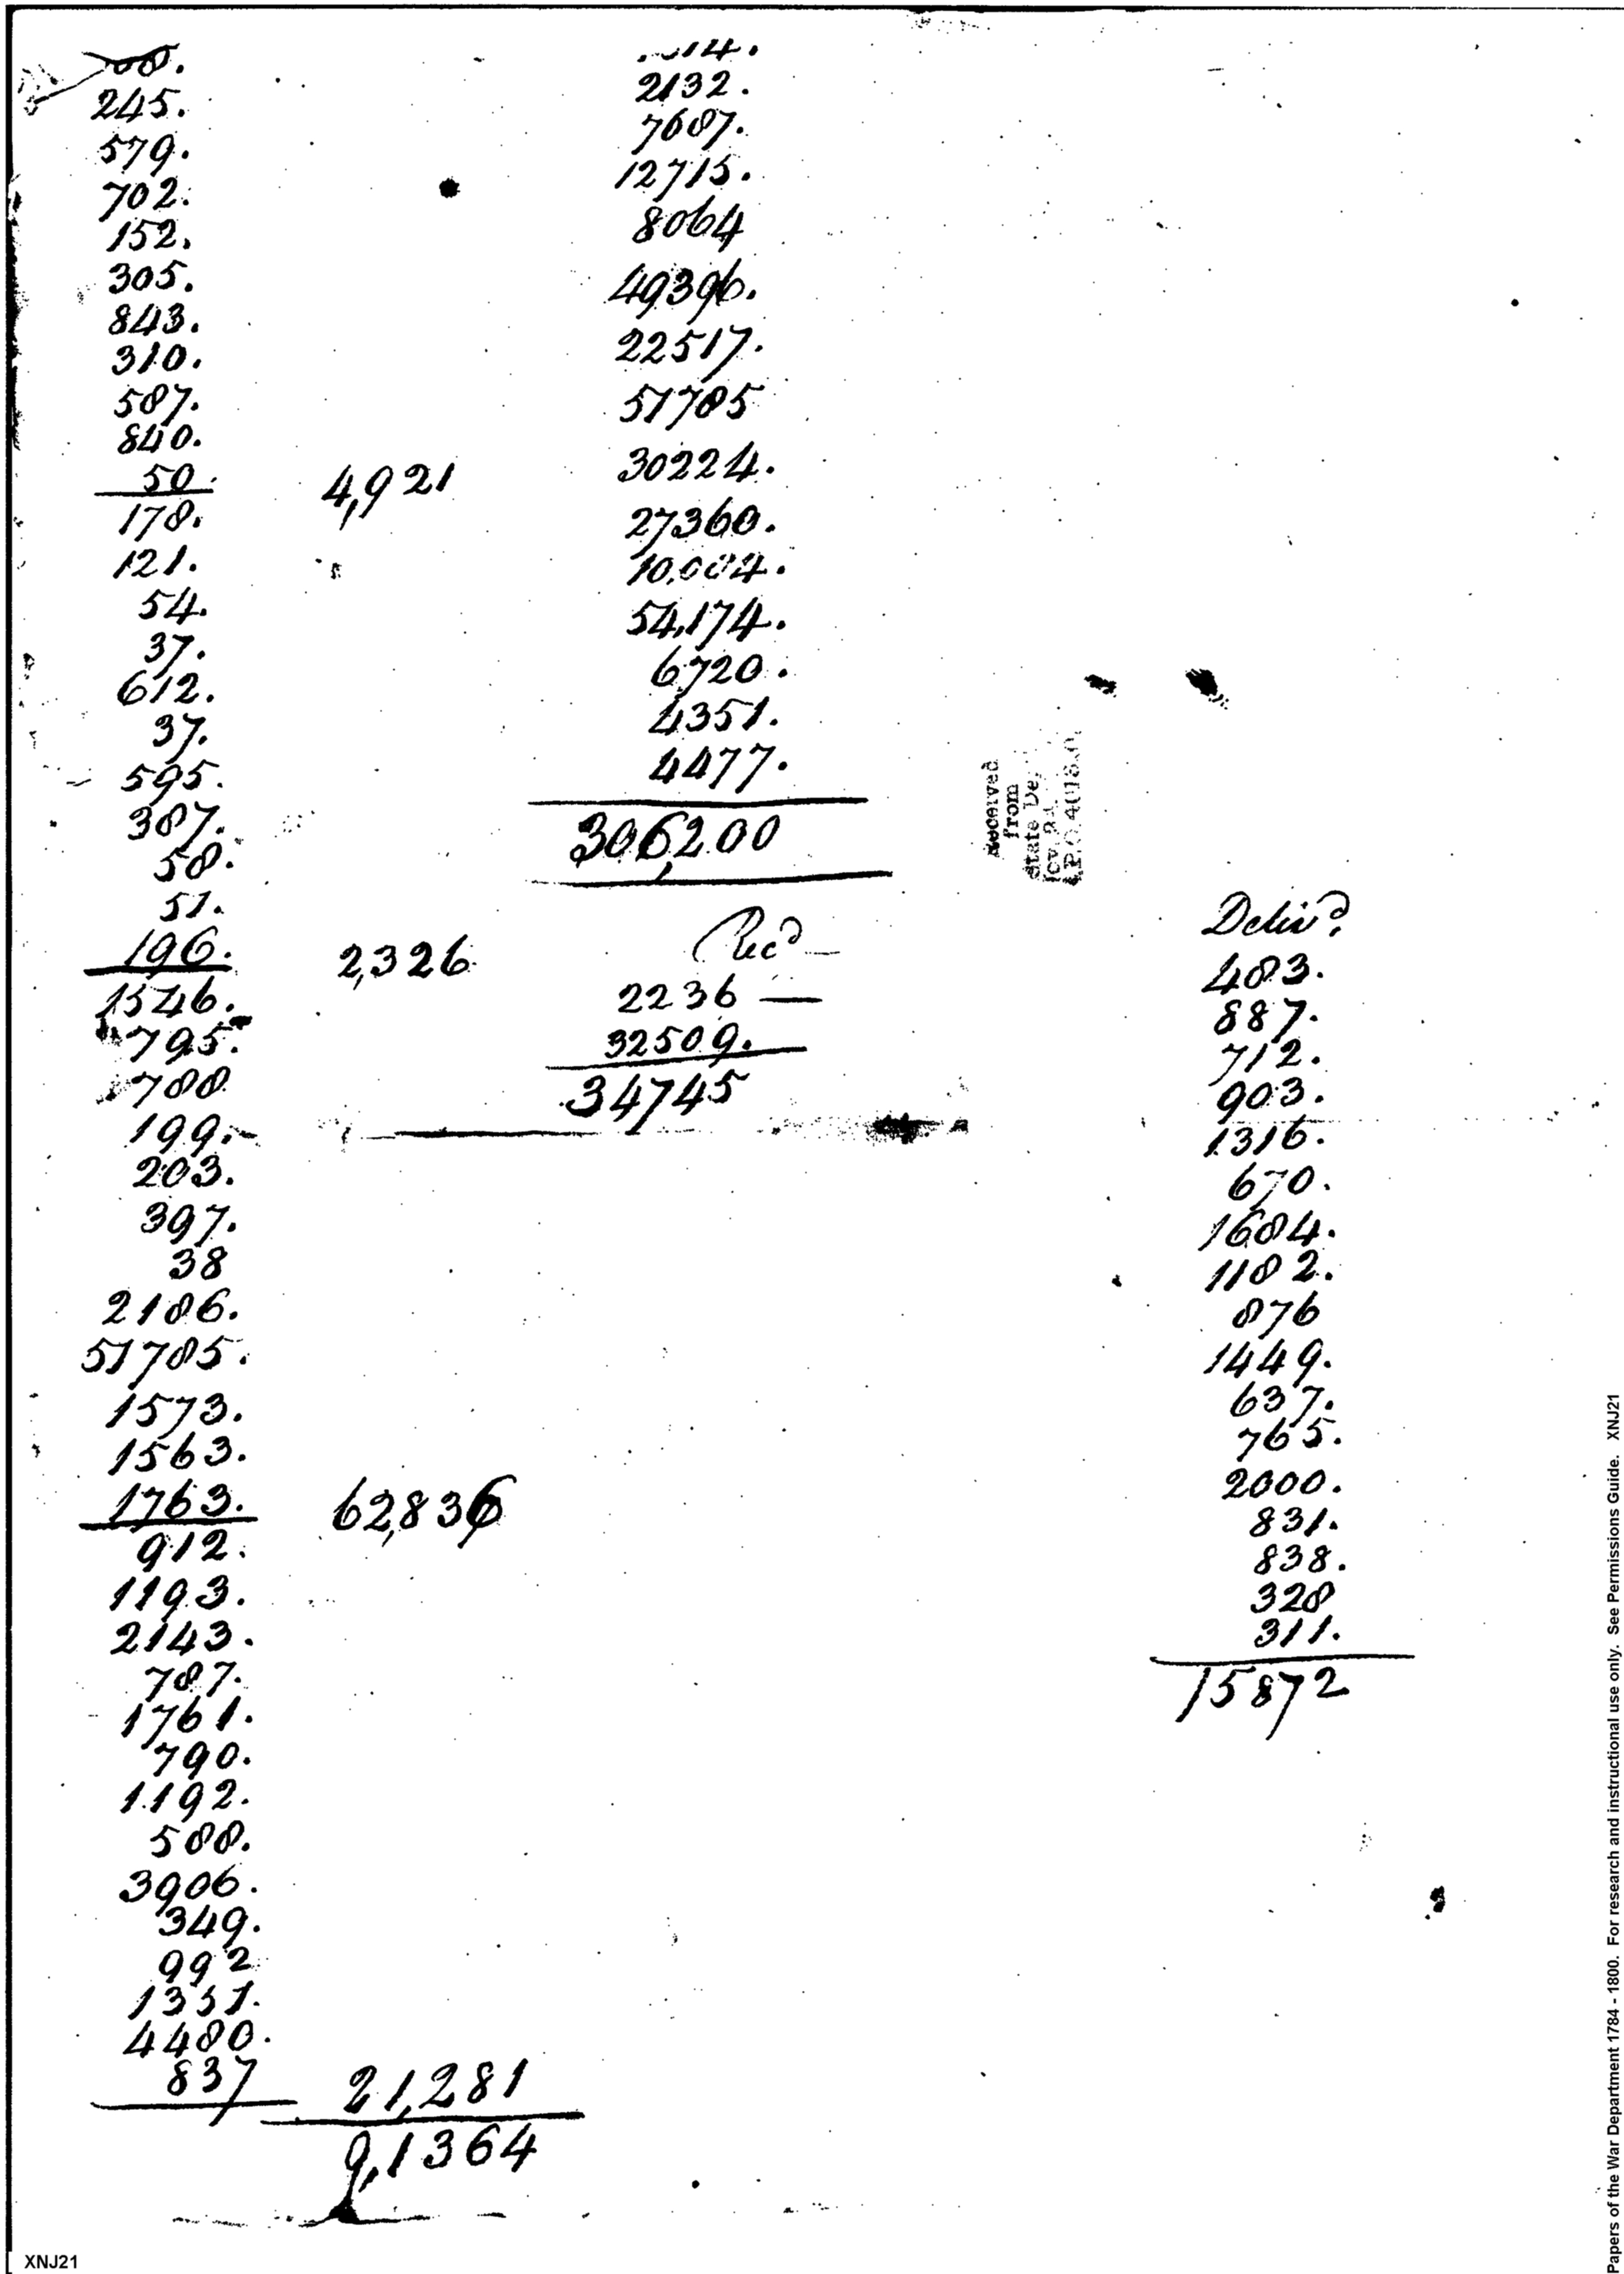 308.
245.
579.
702.
152.
305.
843.
310.
587.
840.
50. 4,921
178.
121.
54.
37.
612.
37.
595.
387.
58.
51.
196. 2,326
1546.
795.
788
199.
203.
397.
38
2186.
51785.
1573.
1563.
1763. 62,836
912.
1193.
2143.
787.
1761.
790.
1192.
588.
3906.
349.
992
1351.
4480.
837 21,281
9,1364
14.
2132.
7687.
12715.
8064
49396.
22517.
51785
30224.
27360.
10,084.
54,174.
6720.
4351.
4477.
306,200
Recd
2236 —
32509.
34745
Received
from
State De
Delivd.
483.
887.
712.
903.
1316.
670.
1684.
1182.
876
1449.
637.
765.
2000.
831.
838.
328
311.
15872
Papers of the War Department 1784 - 1800. For research and instructional use only. See Permissions Guide. XNJ21
XNJ21